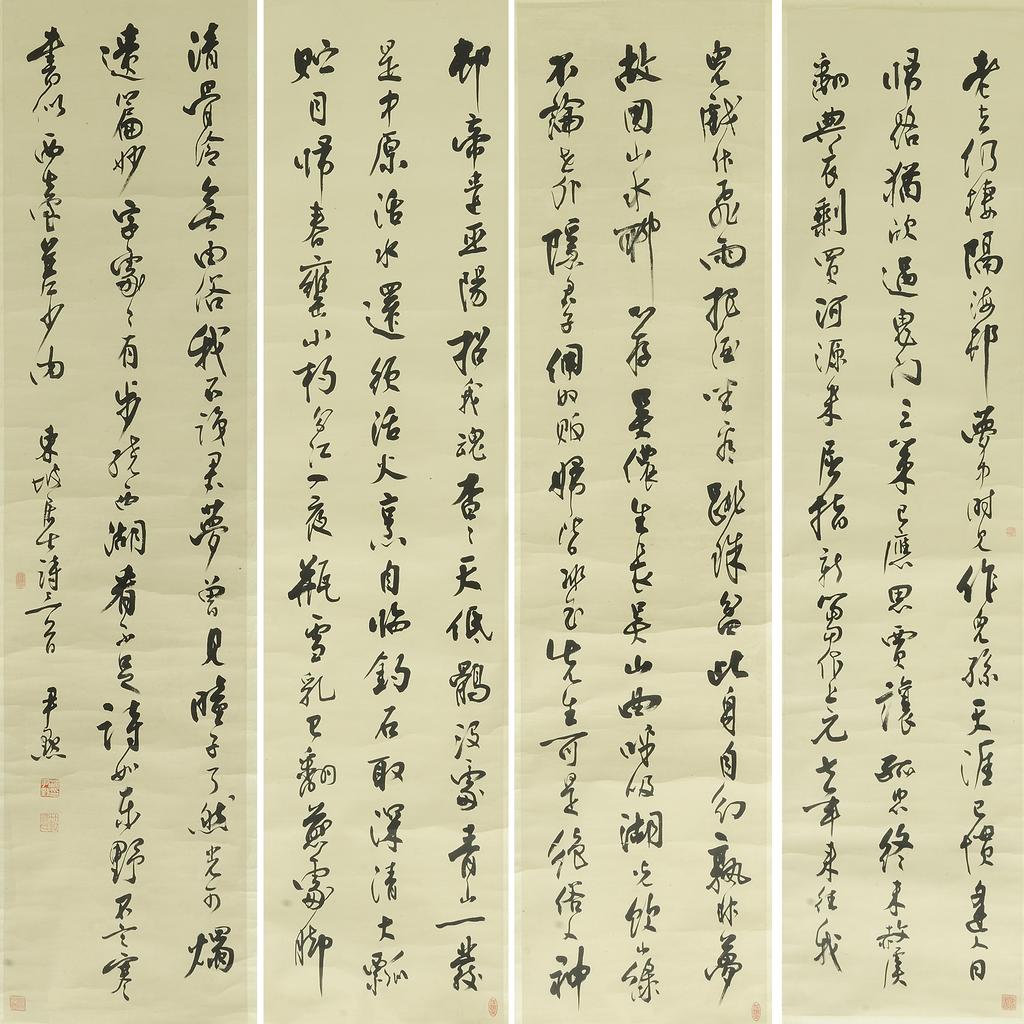 老去仍棲隔海邨夢中時見作兒孫天涯已慣逢人日
歸路猶欣過鬼門三策已應思賈讓孤忠終未赦虞
翻典衣剩買河源米屈指新篘作上元七年來往我
兒戲作飛雨把酒坐看跳珠盆此身自幻孰非夢
故國山水聊心存吳儂生長吳山曲呼吸湖光飲山淥
不論世外隱君子傭奴販婦皆冰玉先生可是絕俗人神
邨帝遣巫陽招我魂杳杳天低鶻沒處青山一髮
是中原活水還須活火烹自臨釣石取深清大瓢
貯月歸春甕小杓分江入夜瓶雪乳已翻煎處腳
清骨冷無由俗我不識君夢曾見瞳子了然光可燭
遺篇妙字處處有步繞西湖看不足詩如東野不言寒
書似西臺差少肉 東坡居士詩三首 尹默